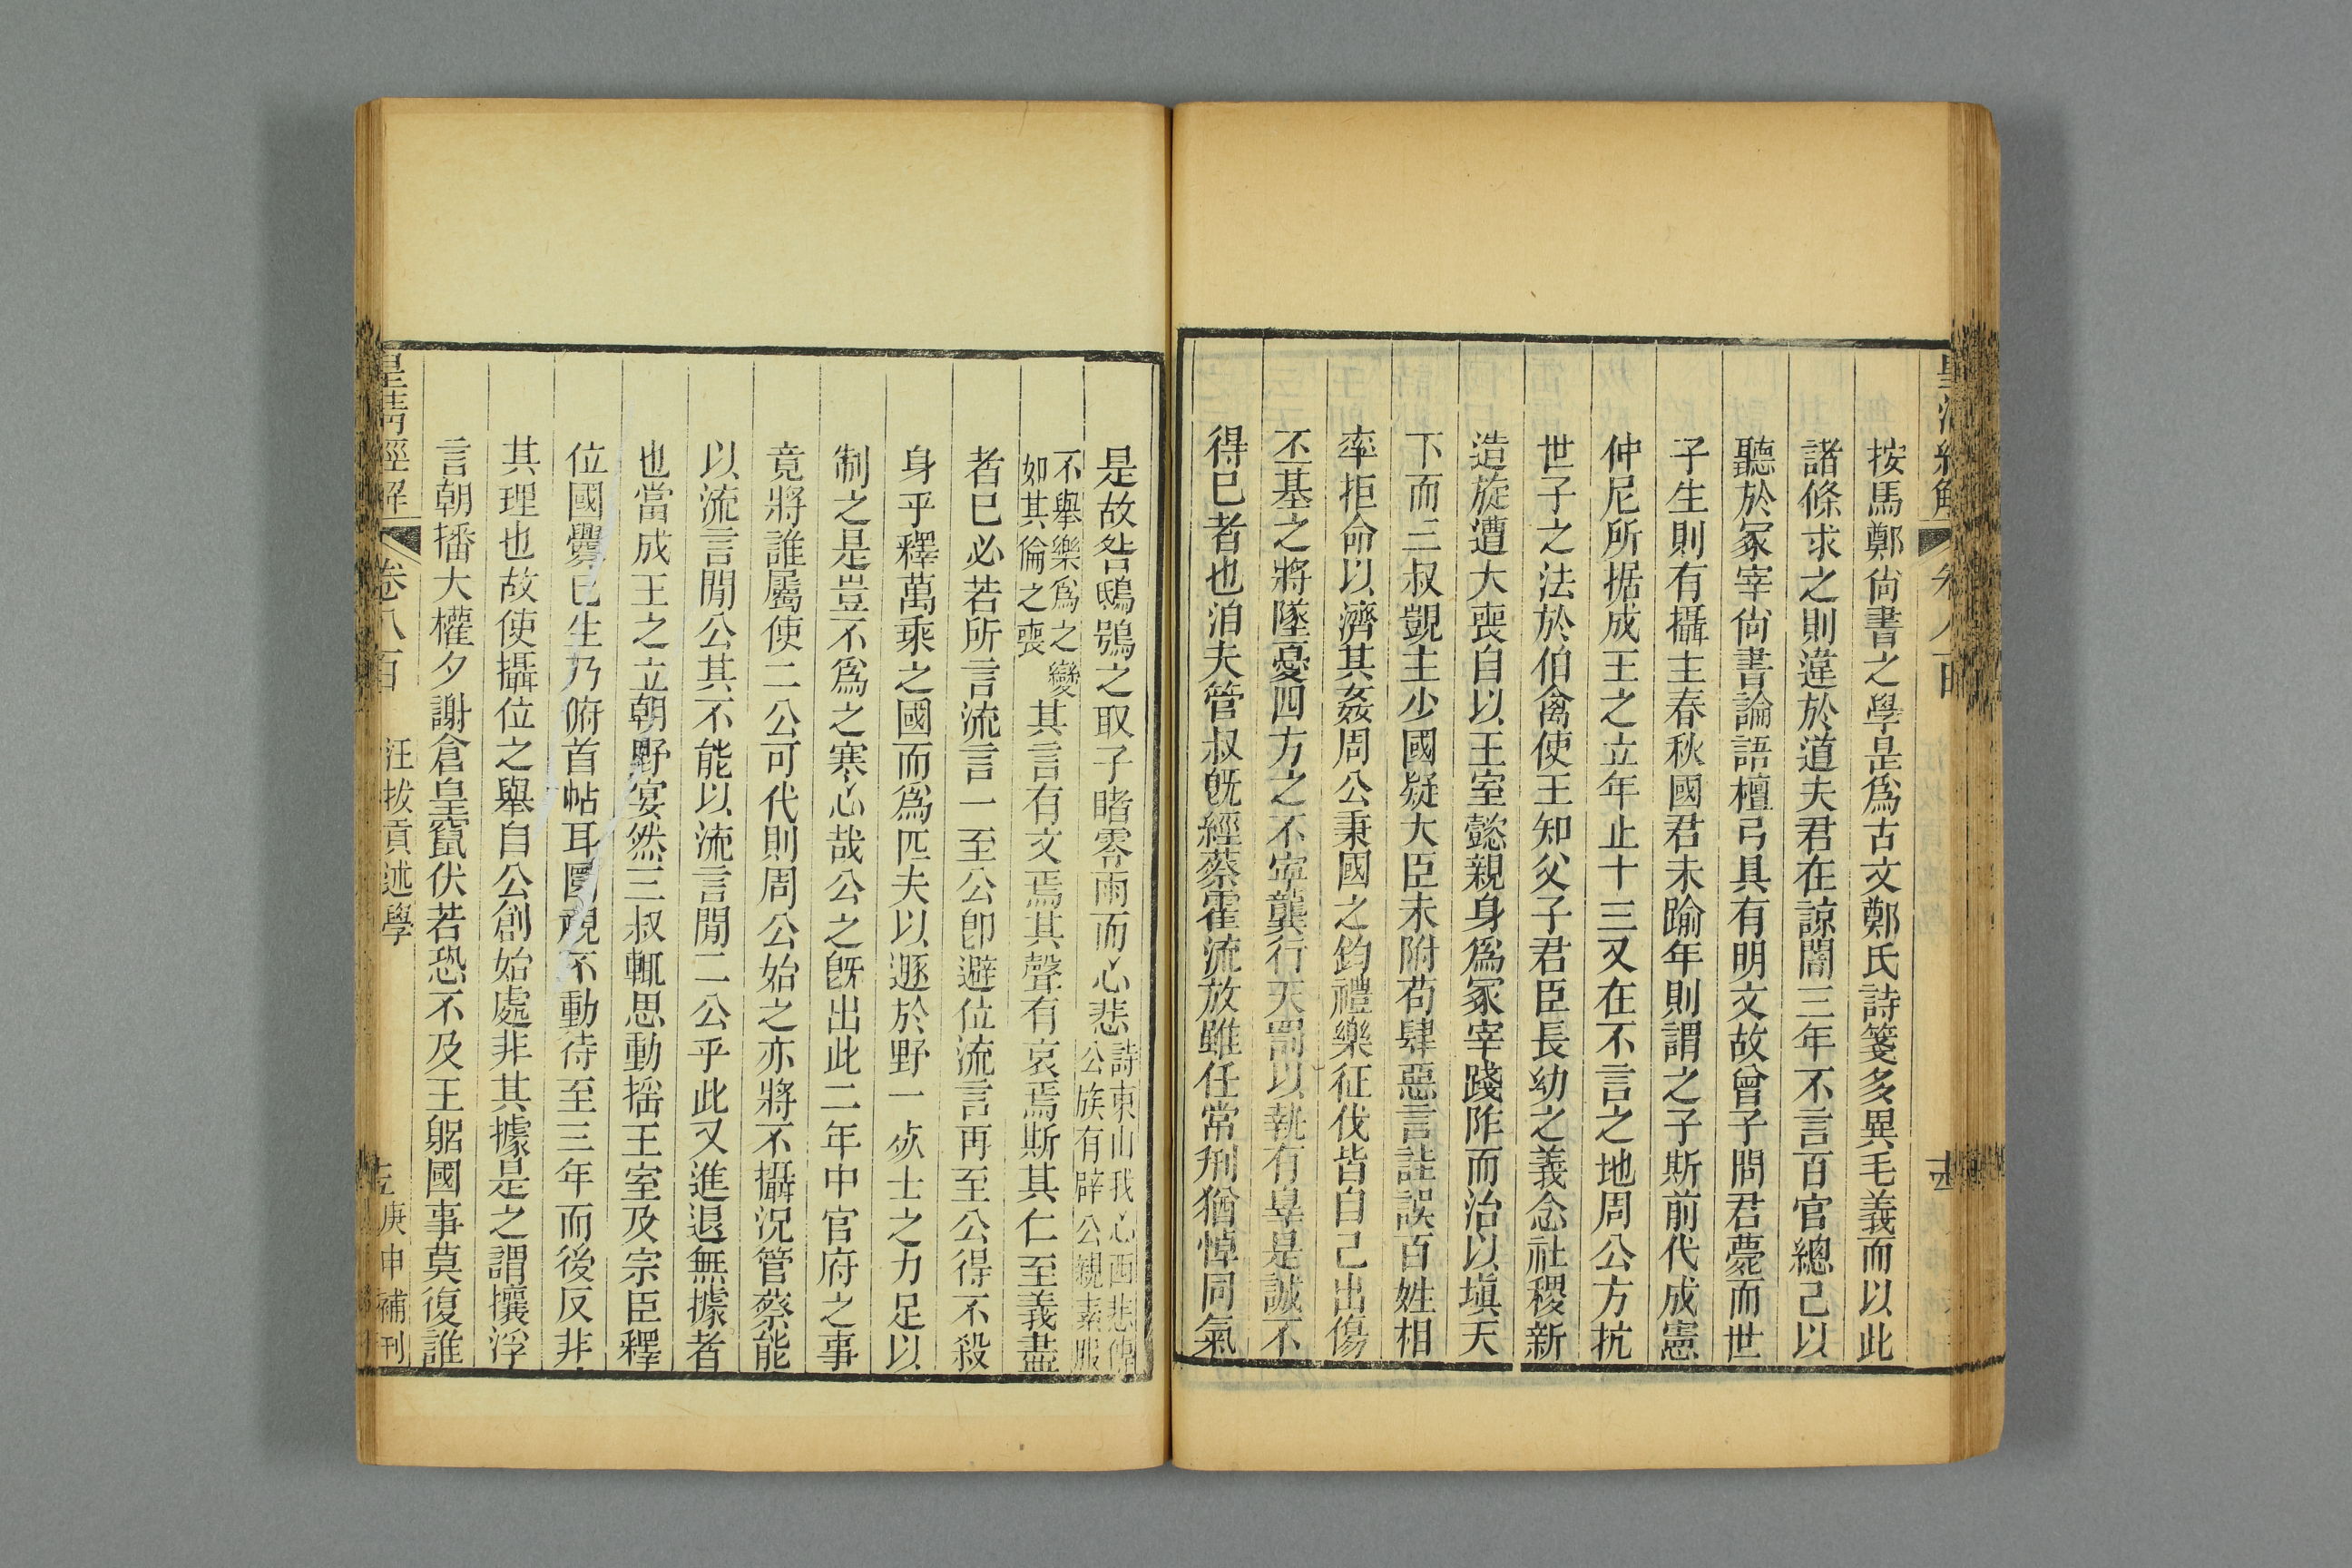 皇清經解 卷八百 古
按馬鄭尙書之學是爲古文鄭氏詩箋多異毛義而以此
諸條求之則違於道夫君在諒闇三年不言百官總己以
聽於冢宰尙書論語檀弓具有明文故曾子問君薨而世
子生則有攝主春秋國君未踰年則謂之子斯前代成憲
仲尼所据成王之立年止十三又在不言之地周公方抗
世子之法於伯禽使王知父子君臣長幼之義念社稷新
造旋遭大喪自以王室懿親身爲冢宰踐阼而治以塡天
下而三叔覬主少國疑大臣未附苟肆惡言詿誤百姓相
率拒命以濟其姦周公秉國之鈞禮樂征伐皆自己出傷
丕基之將墜憂四方之不寧龔行天罰以執有辠是誠不
得已者也洎夫管叔旣經蔡霍流放雖任常刑猶悼同氣
是故咎鴟鴞之取子睹零雨而心悲詩東山我心西悲傳公族有辟公親素服
不舉樂爲之變如其倫之喪其言有文焉其聲有哀焉斯其仁至義盡
者巳必若所言流言一至公卽避位流言再至公得不殺
身乎釋萬乘之國而爲匹夫以遯於野一疢士之力足以
制之是豈不爲之寒心哉公之旣出此二年中官府之事
竟將誰屬使二公可代則周公始之亦將不攝況管蔡能
以流言閒公其不能以流言閒二公乎此又進退無據者
也當成王之立朝野宴然三叔輒思動搖王室及宗臣釋
位國釁已生乃俯首帖耳圜視不動待至三年而後反非
其理也故使攝位之舉自公創始處非其據是之謂攘浮
言朝播大權夕謝倉皇竄伏若恐不及王躬國事莫復誰
皇清經解 卷八百 汪拔貢述學 庚申補刊